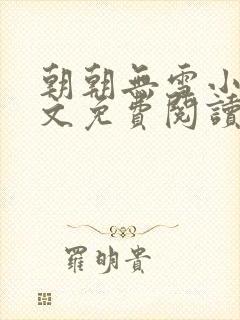 朝朝無雪小
文免費閱讀
羅明貴